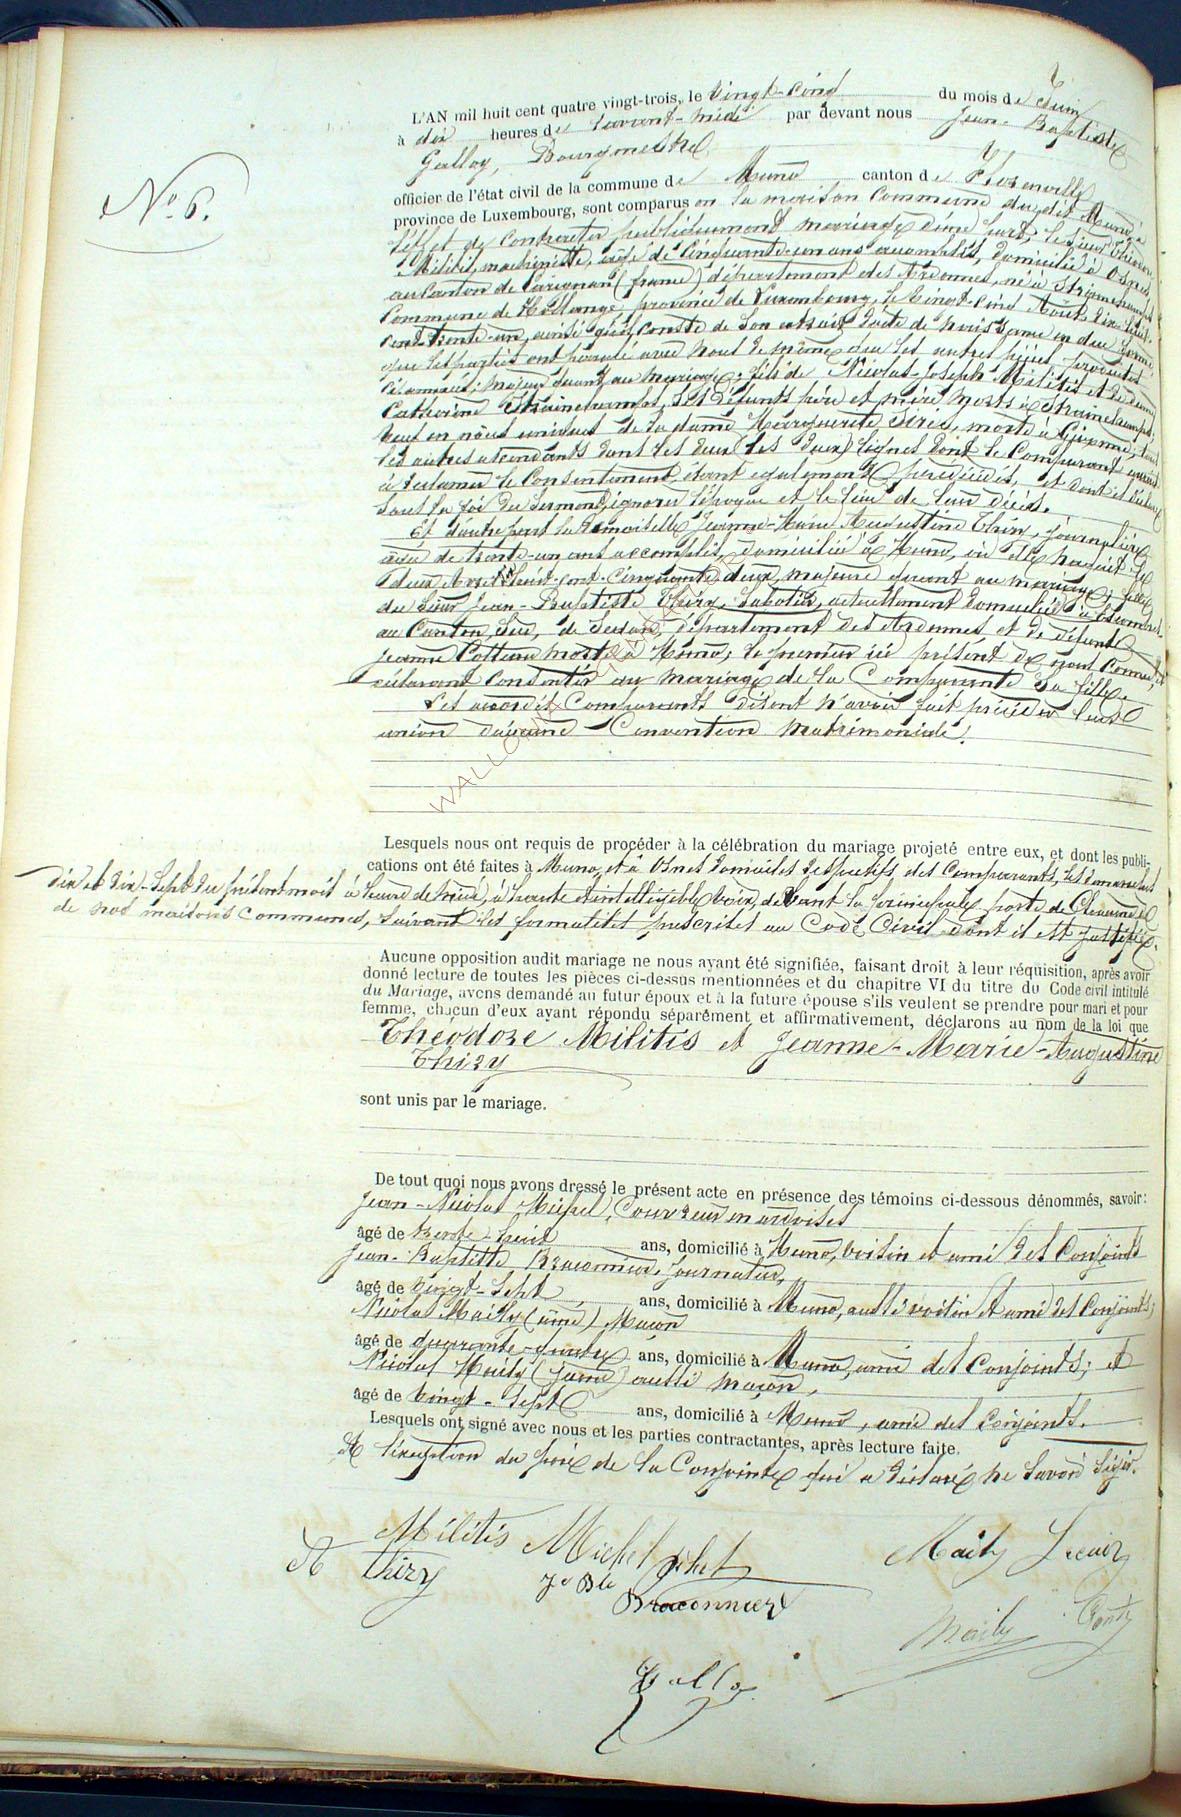 N.º 6.
L'AN mil huit cent quatre vingt-trois, le vingt-cinq du mois de Juin
à dix heures de l'avant-midi par devant nous Jean-Baptiste
Galloy, Bourgmestre
officier de l'état civil de la commune de Muno canton de Florenville
province de Luxembourg, sont comparus en la maison Commune du dit Muno à
l'effet de contracter publiquement mariage d'une part, le sieur Théodore
Militis, machiniste, âgé de Cinquante-un ans accomplis, domicilié à Osnes,
au canton de Carignan (france) département des Ardennes, né à Strainchamps
Commune de Hollange province de Luxembourg, le vingt-cinq Août dix huit-
cent-trente-un, ainsi qu'il conste de son extrait d'acte de naissance en due forme,
que les parties ont parafé avec nous de même que les autres pièces produites
ci-annexées; majeur quant au mariage; fils de Nicolas-Joseph Militis et de dame
Catherine Strainchamps, ses défunts père et mère morts à Strainchamps;
veuf en noces uniques de la dame Marguerite morte à
les autres ascendants dans les deux (les deux) lignes dont le Comparant aurait
à réclamer le Consentement, étant également prédécédés, et dont il déclare
sous la foi du serment ignorer l'époque et le lieu de leur décès.
Et d'autre part la demoiselle Jeanne-Marie Augustine Thiry, journalière
âgée de trente-un ans accomplis, domiciliée à Muno, où elle naquit le
deux Avril huit-cent-cinquante deux, majeure quant au mariage; fille
du sieur Jean-Baptiste Thiry, Sabotier, actuellement domicilié à
au Canton Sud, de Sedan, département des Ardennes et de défunte
Jeanne Potteau morte à Muno; le premier ici présent de nous connu, et
déclarant consentir au mariage de la Comparante sa fille.
Les accordés Comparants disent n'avoir fait précéder leur
union d'aucune Convention matrimoniale.
Lesquels nous ont requis de procéder à la célébration du mariage projeté entre eux, et dont les publi-
cations ont été faites à Muno et à Osnes domiciles respectifs des Comparants, les dimanches
dix et dix-Sept du présent mois à l'heure de midi, à haute et intelligible voix, devant la principale porte de Chacune
de nos maisons Communes, suivant les formalités prescrites au Code Civil dont il est justifié.
Aucune opposition audit mariage ne nous ayant été signifiée, faisant droit à leur réquisition, après avoir
donné lecture de toutes les pièces ci-dessus mentionnées et du chapitre VI du titre du Code civil intitulé
du Mariage, avons demandé au futur époux et à la future épouse s'ils veulent se prendre pour mari et pour
femme, chacun d'eux ayant répondu séparément et affirmativement, déclarons au nom de la loi que
Théodore Militis et Jeanne-Marie-Augustine
Thiry
sont unis par le mariage.
De tout quoi nous avons dressé le présent acte en présence des témoins ci-dessous dénommés, savoir:
Jean-Nicolas Michel, Couvreur en ardoises
âgé de trente-huit ans, domicilié à Muno, voisin et ami des Conjoints
Jean-Baptiste Braconnier, Journalier,
âgé de vingt-sept ans, domicilié à Muno, aussi voisin et ami des Conjoints;
Nicolas Maily (aîné) Maçon
âgé de quarante-quatre ans, domicilié à Muno, ami des Conjoints; et
Nicolas Maily (jeune) aussi maçon,
âgé de vingt-sept ans, domicilié à Muno, ami des Conjoints.
Lesquels ont signé avec nous et les parties contractantes, après lecture faite.
A l'exception du père de la Conjointe qui a déclaré ne savoir signer.
Militis Michel Maily
A Thiry Jn Bte
Braconnier
Maily
Galloy